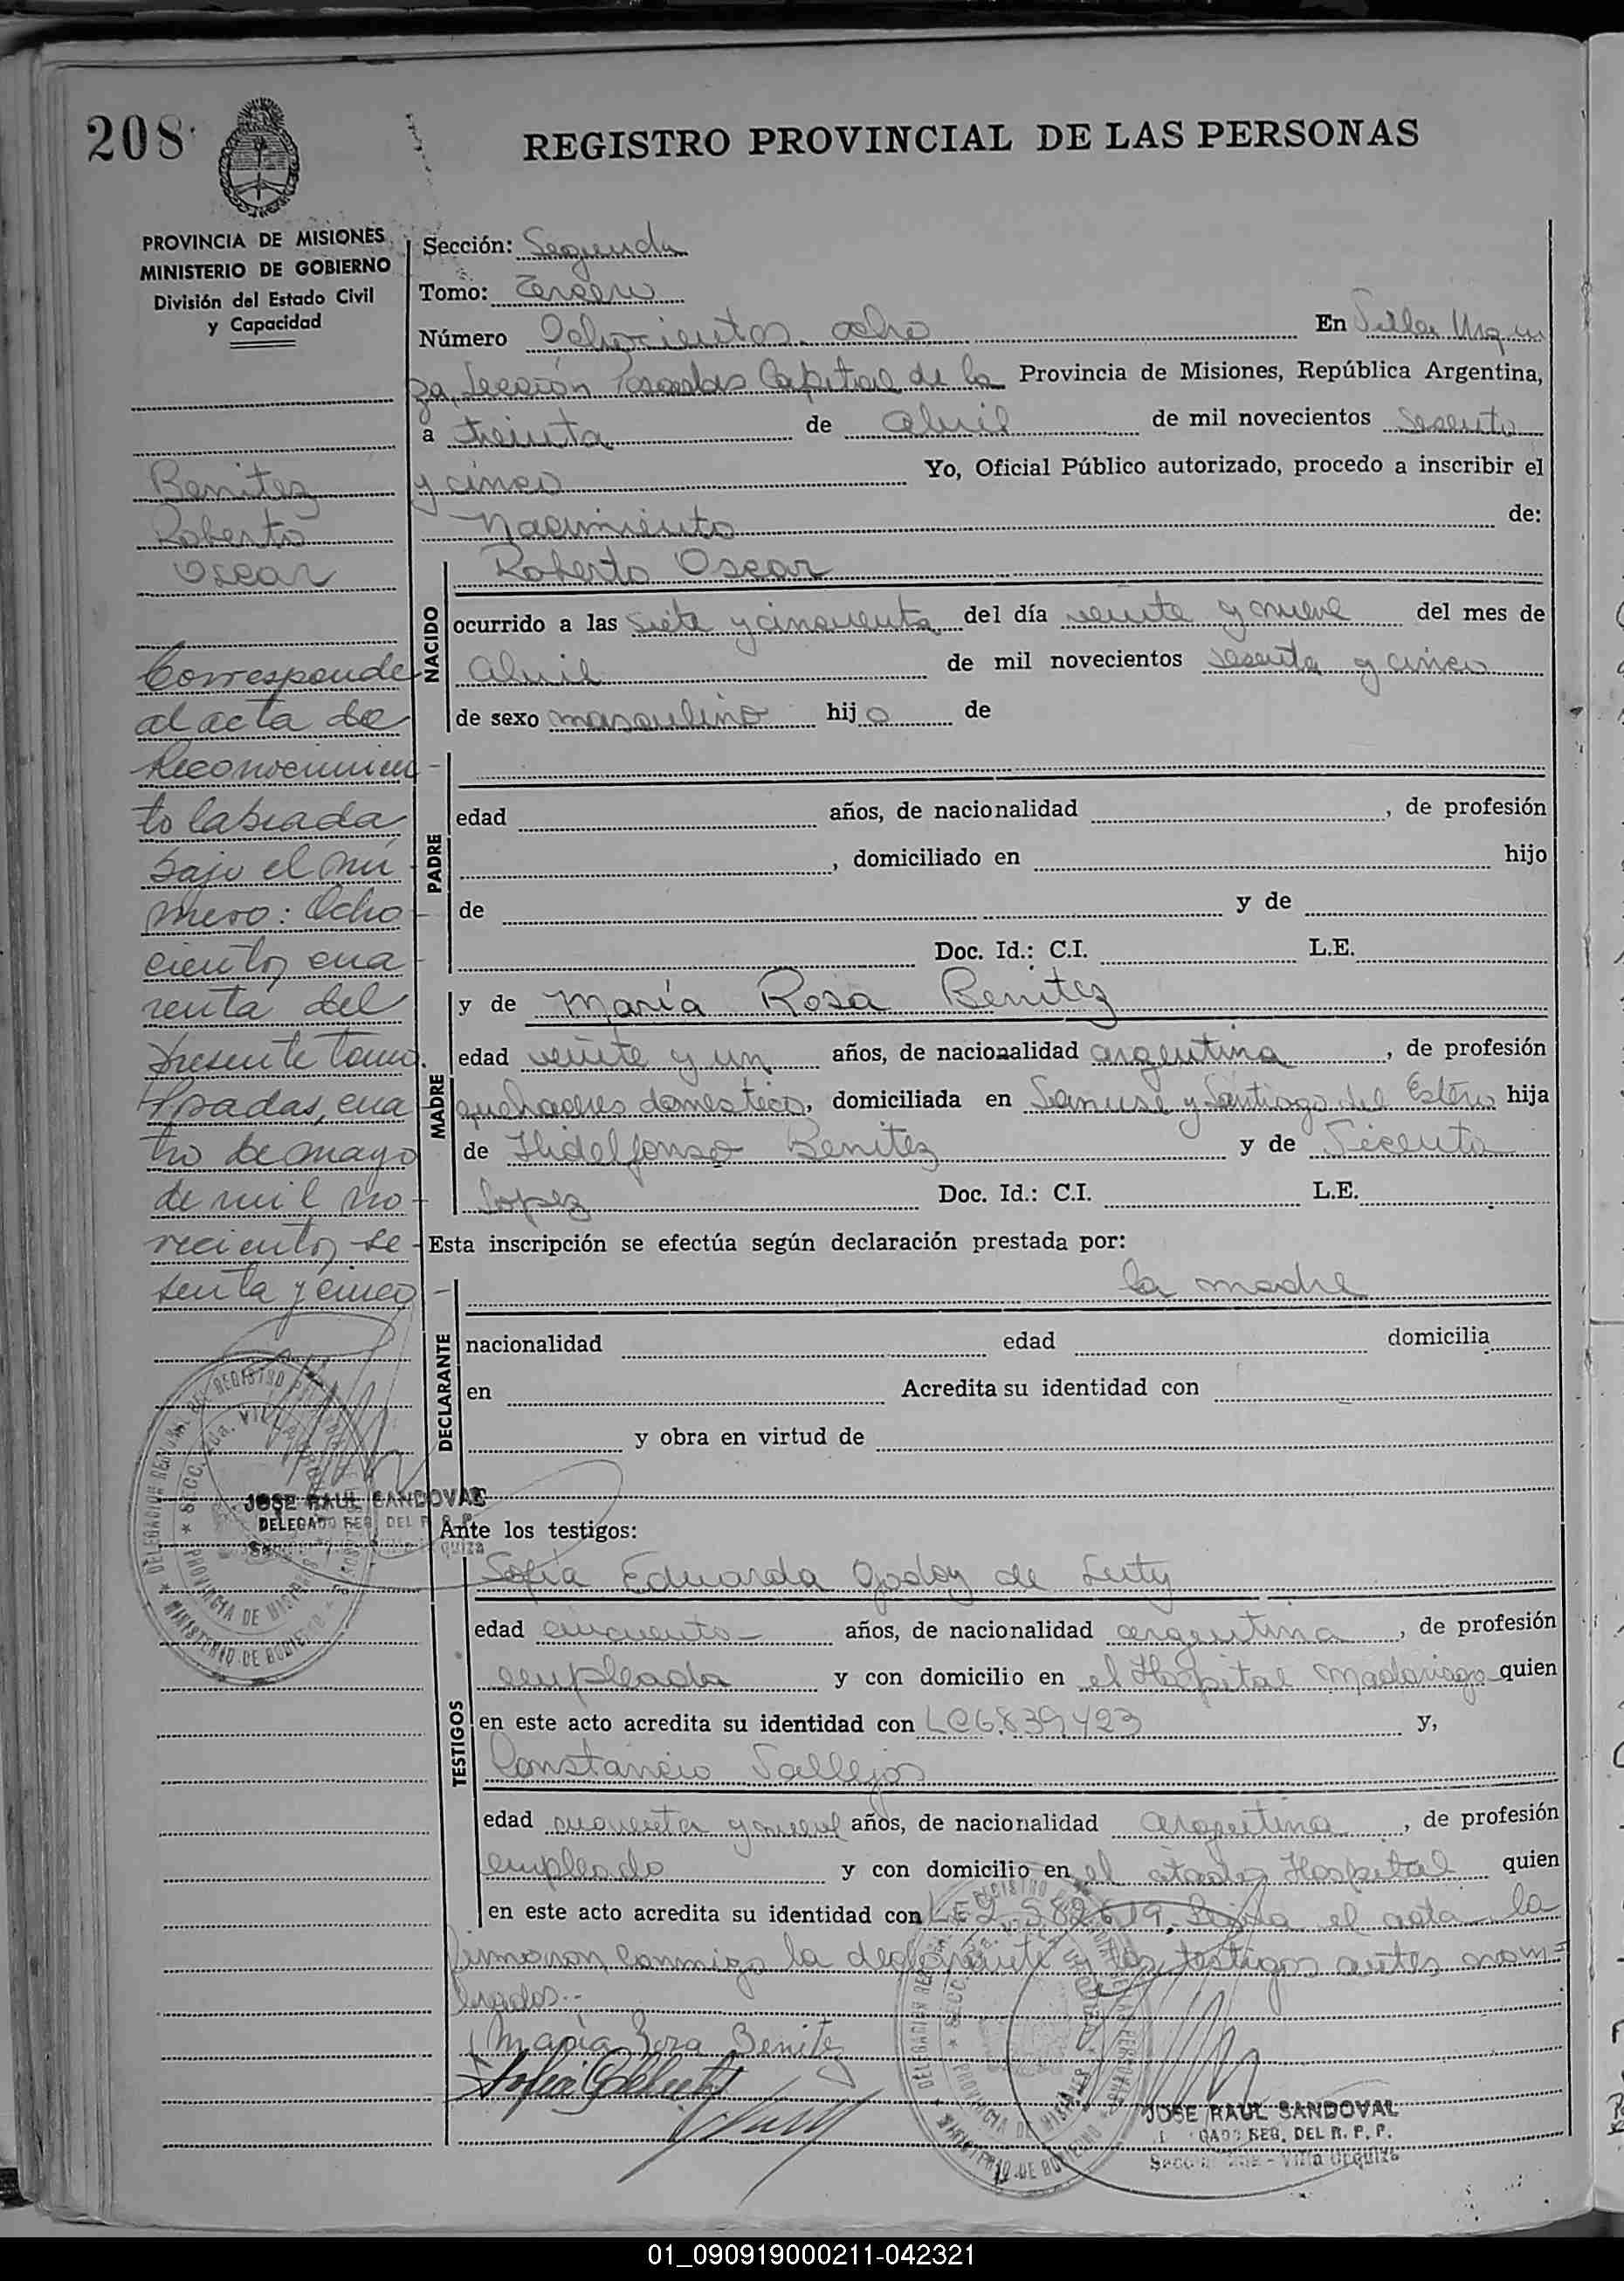 208
REGISTRO PROVINCIAL DE LAS PERSONAS
PROVINCIA DE MISIONES
MINISTERIO DE GOBIERNO
División del Estado Civil
y Capacidad
Benitez
Roberto
Oscar
Corresponde
al acta de
Reconocimien
to labrada
bajo el nú
mero: Ocho
cientos cua
renta del
presente tomo.
Posadas, cua
tro de mayo
de mil no
vecientos se
senta y cinco
JOSE RAUL SANDOVAL
DELEGADO REG. DEL R. P. P.
Sección: Segunda
Tomo: Tercero
Número Ochocientos ocho En Villa Urqui
za, Sección Posadas Capital de la Provincia de Misiones, República Argentina,
a treinta de abril de mil novecientos sesenta
y cinco Yo, Oficial Público autorizado, procedo a inscribir el
Nacimiento de:
NACIDO
Roberto Oscar
ocurrido a las siete y cincuenta del día veinte y nueve del mes de
abril de mil novecientos sesenta y cinco
de sexo masculino hijo de
PADRE
edad años, de nacionalidad , de profesión
, domiciliado en hijo
de y de
Doc. Id.: C.I. L.E.
MADRE
y de María Rosa Benitez
edad veinte y un años, de nacionalidad argentina, de profesión
quehaceres domesticos, domiciliada en y Santiago del Estero hija
de Ildelfonso Benitez y de Vicenta
Lopez Doc. Id.: C.I. L.E.
Esta inscripción se efectúa según declaración prestada por:
la madre
DECLARANTE
nacionalidad edad domicilia
en Acredita su identidad con
y obra en virtud de
Ante los testigos:
TESTIGOS
Sofia Eduarda Godoy de
edad cincuenta años, de nacionalidad argentina, de profesión
empleada y con domicilio en el Hospital Madariaga quien
en este acto acredita su identidad con LC 6.839.423 y,
Constancio Vallejos
edad cuarenta y nueve años, de nacionalidad argentina, de profesión
empleado y con domicilio en el citado Hospital quien
en este acto acredita su identidad con LE 2.582.619. el acta la
firmaron conmigo la declarante y los testigos antes nom=
brados.-
María Rosa Benitez
JOSE RAUL SANDOVAL
REG. DEL R. P. P.
Villa Urquiza
01_090919000211-042321